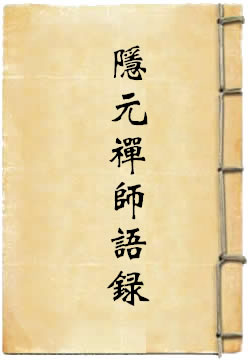 隱元禪師語録